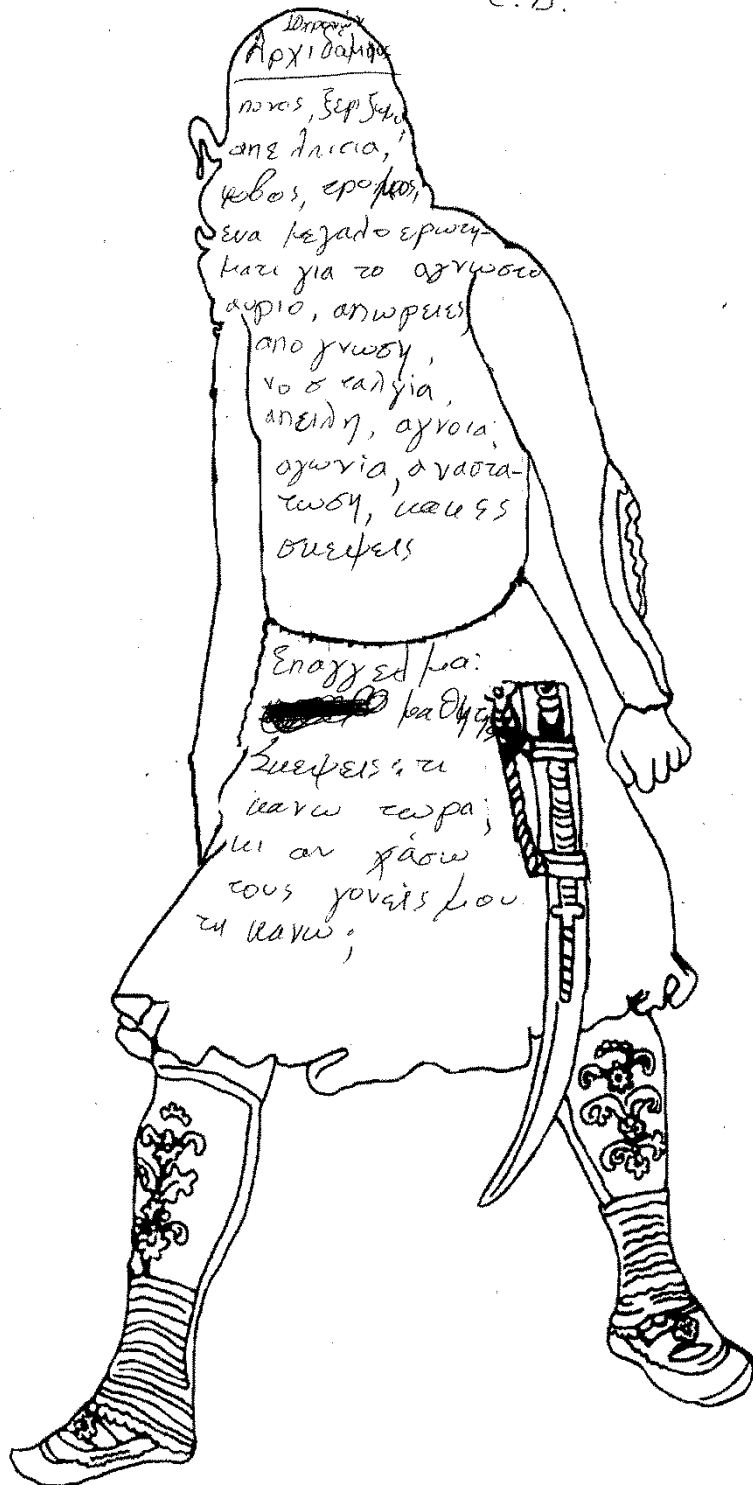 C.B.
10χρονών
Αρχιδαμος
πονος, ξεριζωμ
απελπισια,
φοβος, τρομος,
ενα μεγαλο ερωτη-
ματι για το αγνωστο
αυριο, απωρειες
απογνωση,
νοσταλγία,
απειλη, αγνοια,
αγωνία, αναστα-
τωση, κακες
σκεψεις
Επαγγελμα:
μαθητης
Σκεψεις: τι
κανω τωρα;
κι αν χάσω
τους γονείς μου
τι κανω;